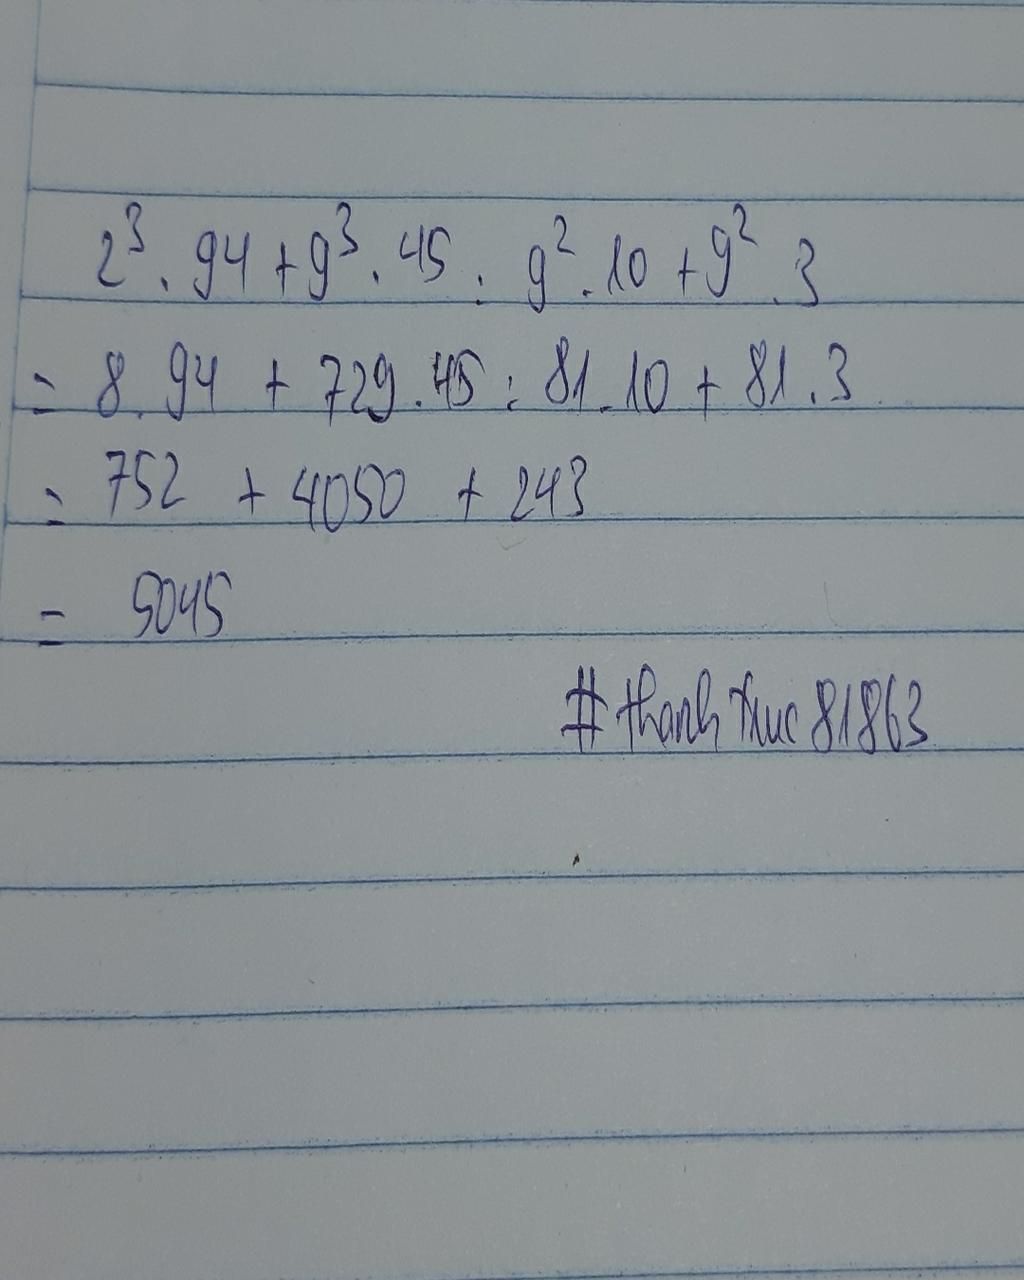 2³ . 94 + 9³ . 45 : 9² . 10 + 9² . 3
= 8 . 94 + 729 . 45 : 81 . 10 + 81 . 3
= 752 + 4050 + 243
= 5045
#thanh truc 81863